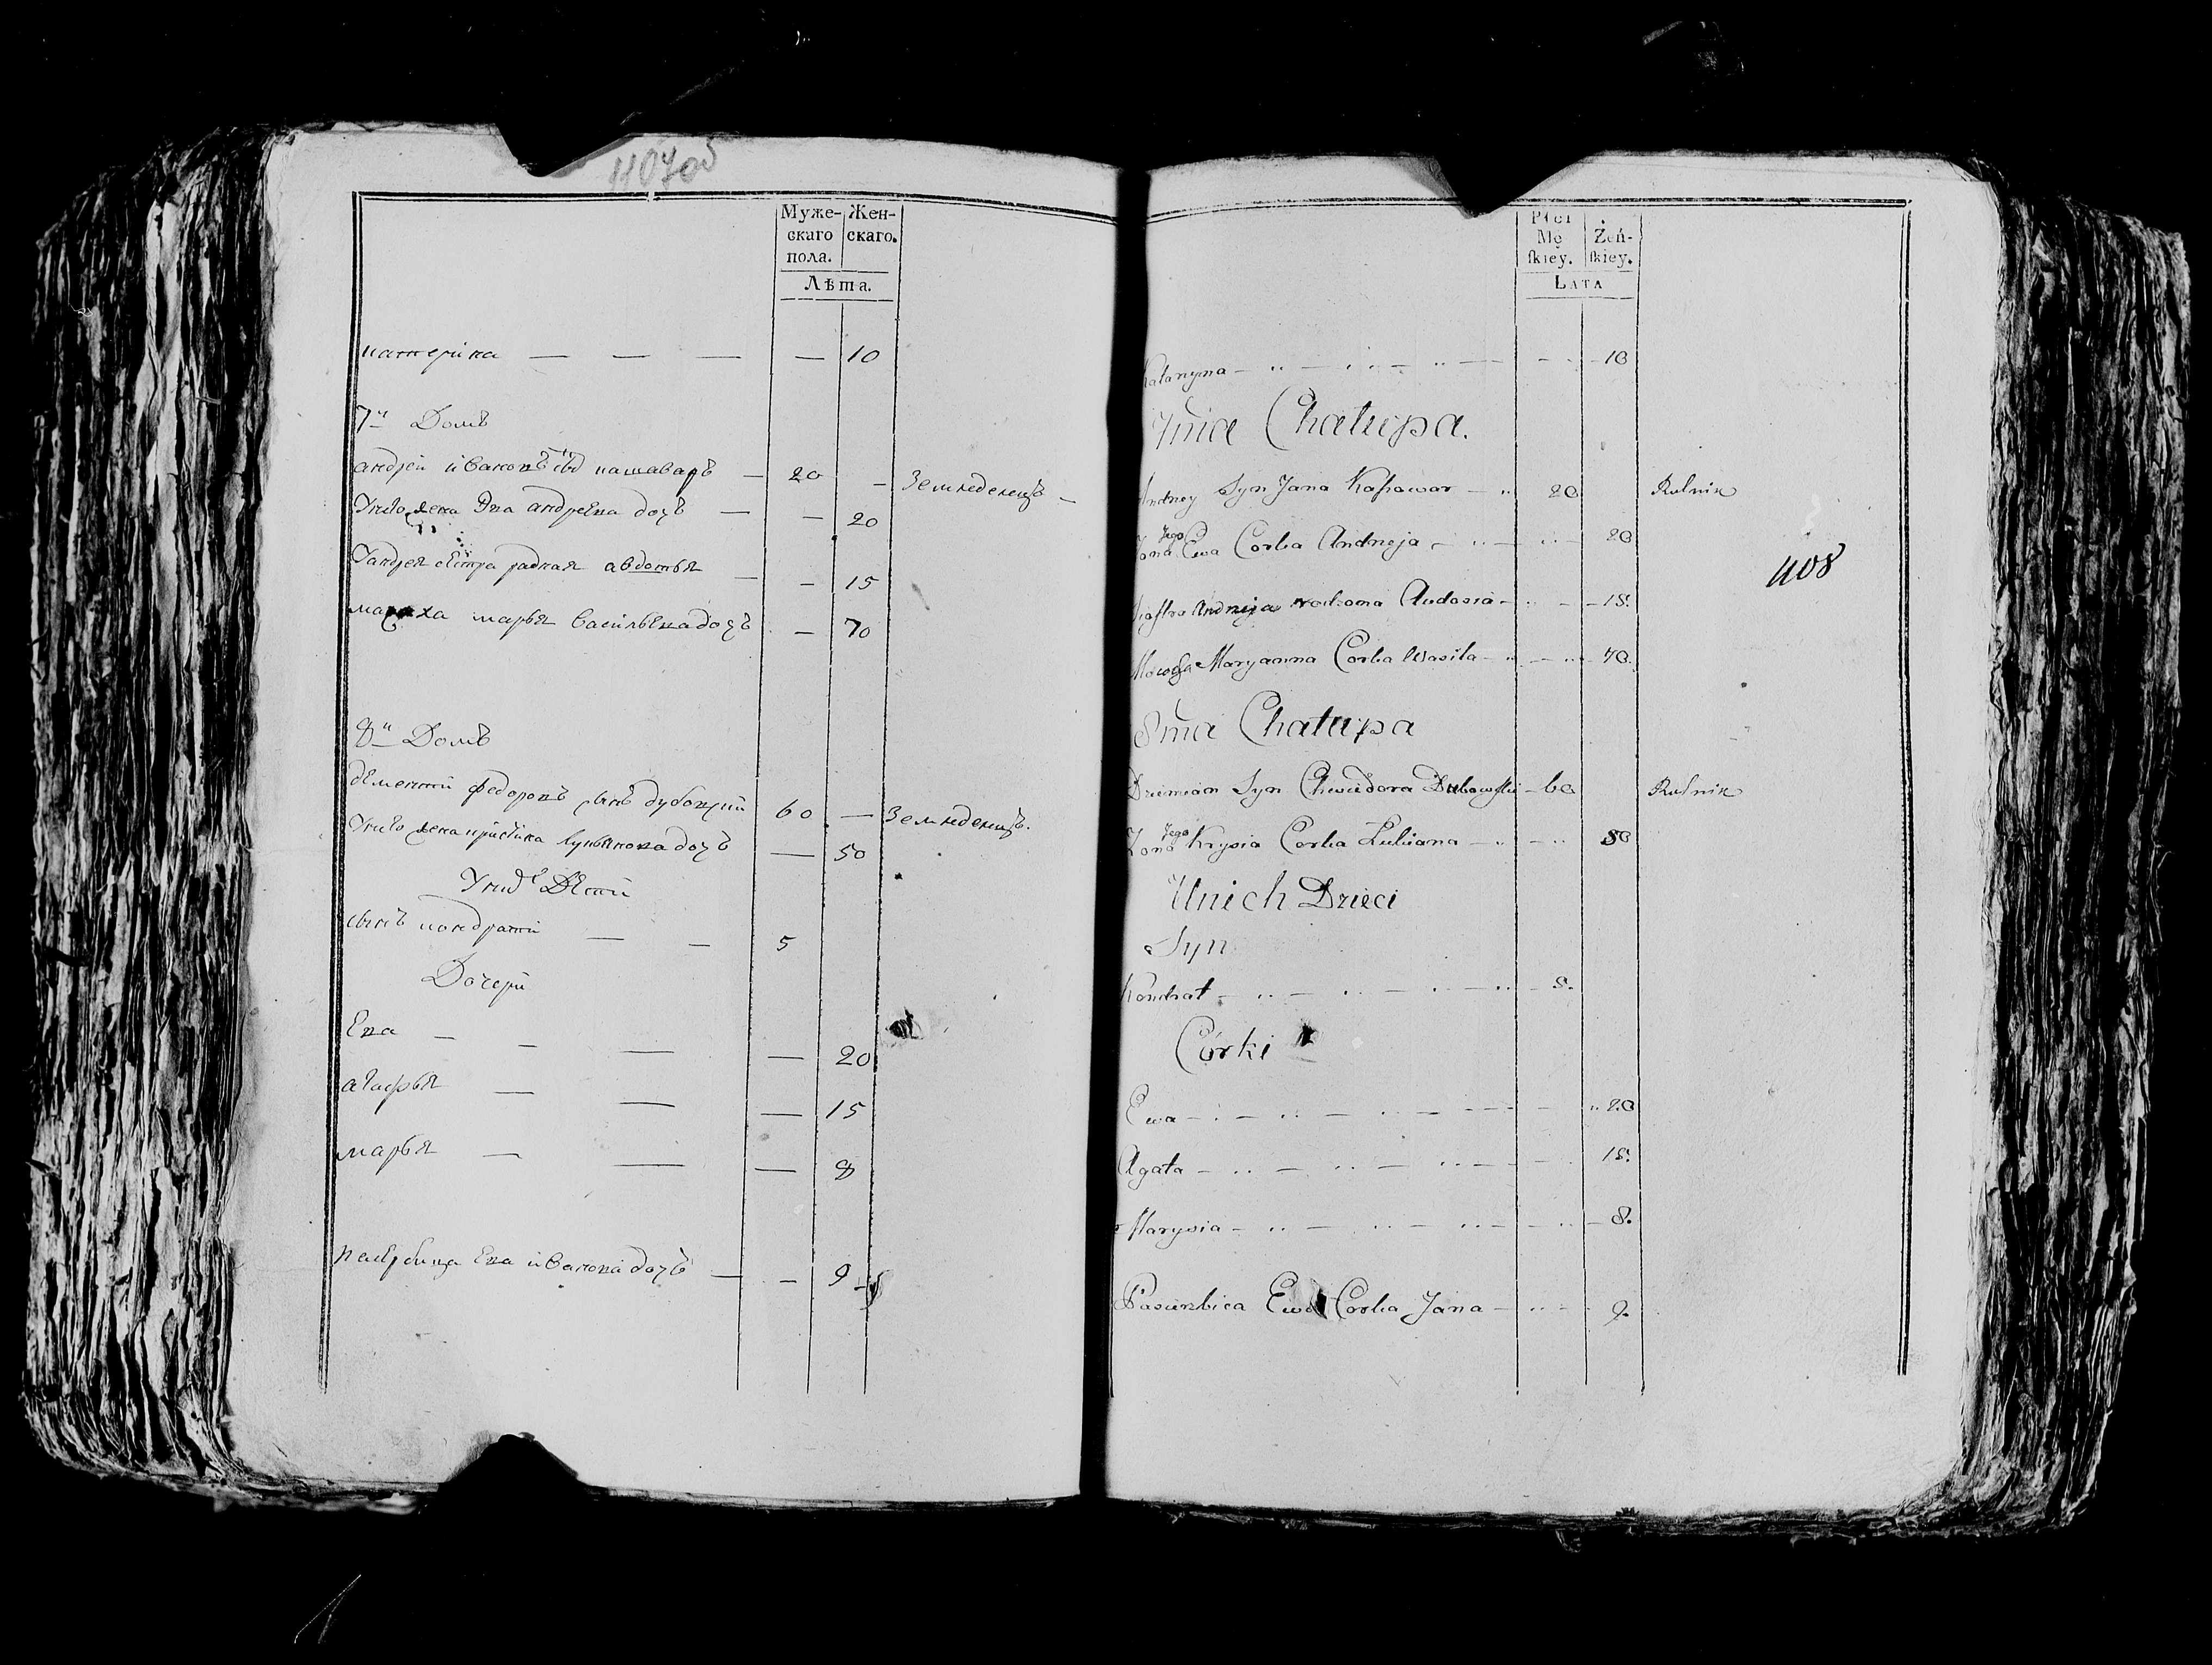 1107 об
Муже-
скаго
пола.
Жен-
скаго.
Лѣта.
катерина — — — — 10
7й Домъ
андрей ивановъ сынъ кашаваръ — 20 — Земледелецъ —
У него жена Эва андреева дочъ — — 20
У андрея сестра радная авдотья — — 15
мачиха марья васильева дочъ — 70
8й Домъ
дементи федоровъ сынъ дубовский 60 — Земледелецъ.
У него жена кристина лукьянова дочъ — 50
У них Дети
сынъ кондрати — — 5
Дочери
Ева — — — — 20
агафья — — — 15
марья — — — 8
пасербица Ева иванова дочъ — — 9
Płci
Mę
ſkiey.
Żeń-
ſkiey.
Lata
Kataryna 10
7ma Chałupa.
Andrzey Syn Jana Kaszawar 20 Rolnik
Żona Jego Ewa Corka Andrzeja 20
1108
Siostra Andrzeja rodzona Audosia 15.
Macocha Maryanna Corka Wasila 70.
8ma Chałupa
Dziemian Syn Chwiedora Dubowski 60 Rolnik
Żona Jego Krysia Corka Łukiana 50
U nich Dzieci
Syn
Kondrat 5.
Córki
Ewa 20
Agata 15.
Marysia 8.
Pasierzbica Ewa Corka Jana 9.